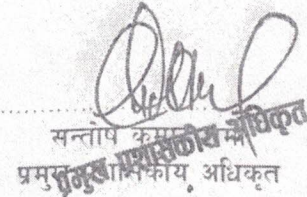 सन्तोष कुमार
प्रमुख प्रशासकीय अधिकृत
प्रमुख प्रशासकीय अधिकृत